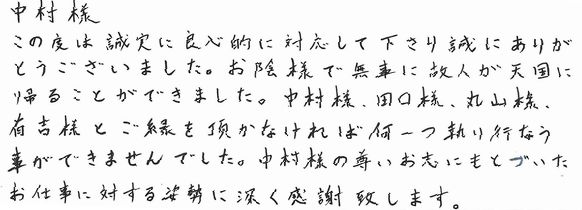 中村様
この度は誠実に良心的に対応して下さり誠にありが
とうございました。お陰様で無事に故人が天国に
帰ることができました。中村様、田口様、丸山様、
有吉様とご縁を頂かなければ何一つ執り行なう
事ができませんでした。中村様の尊いお志にもとづいた
お仕事に対する姿勢に深く感謝致します。